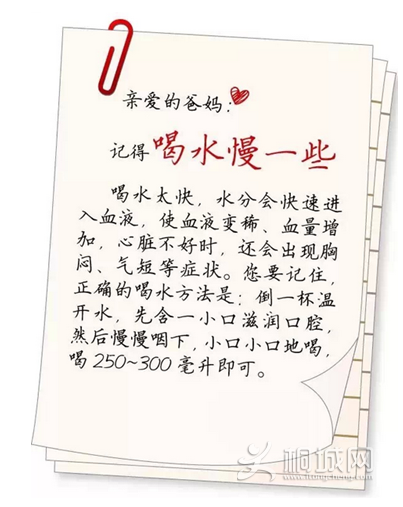 亲爱的爸妈：
记得喝水慢一些
喝水太快，水分会快速进
入血液，使血液变稀、血量增
加，心脏不好时，还会出现胸
闷、气短等症状。您要记住，
正确的喝水方法是：倒一杯温
开水，先含一小口滋润口腔，
然后慢慢咽下，小口小口地喝，
喝250~300毫升即可。
桐城网
www.itongcheng.com